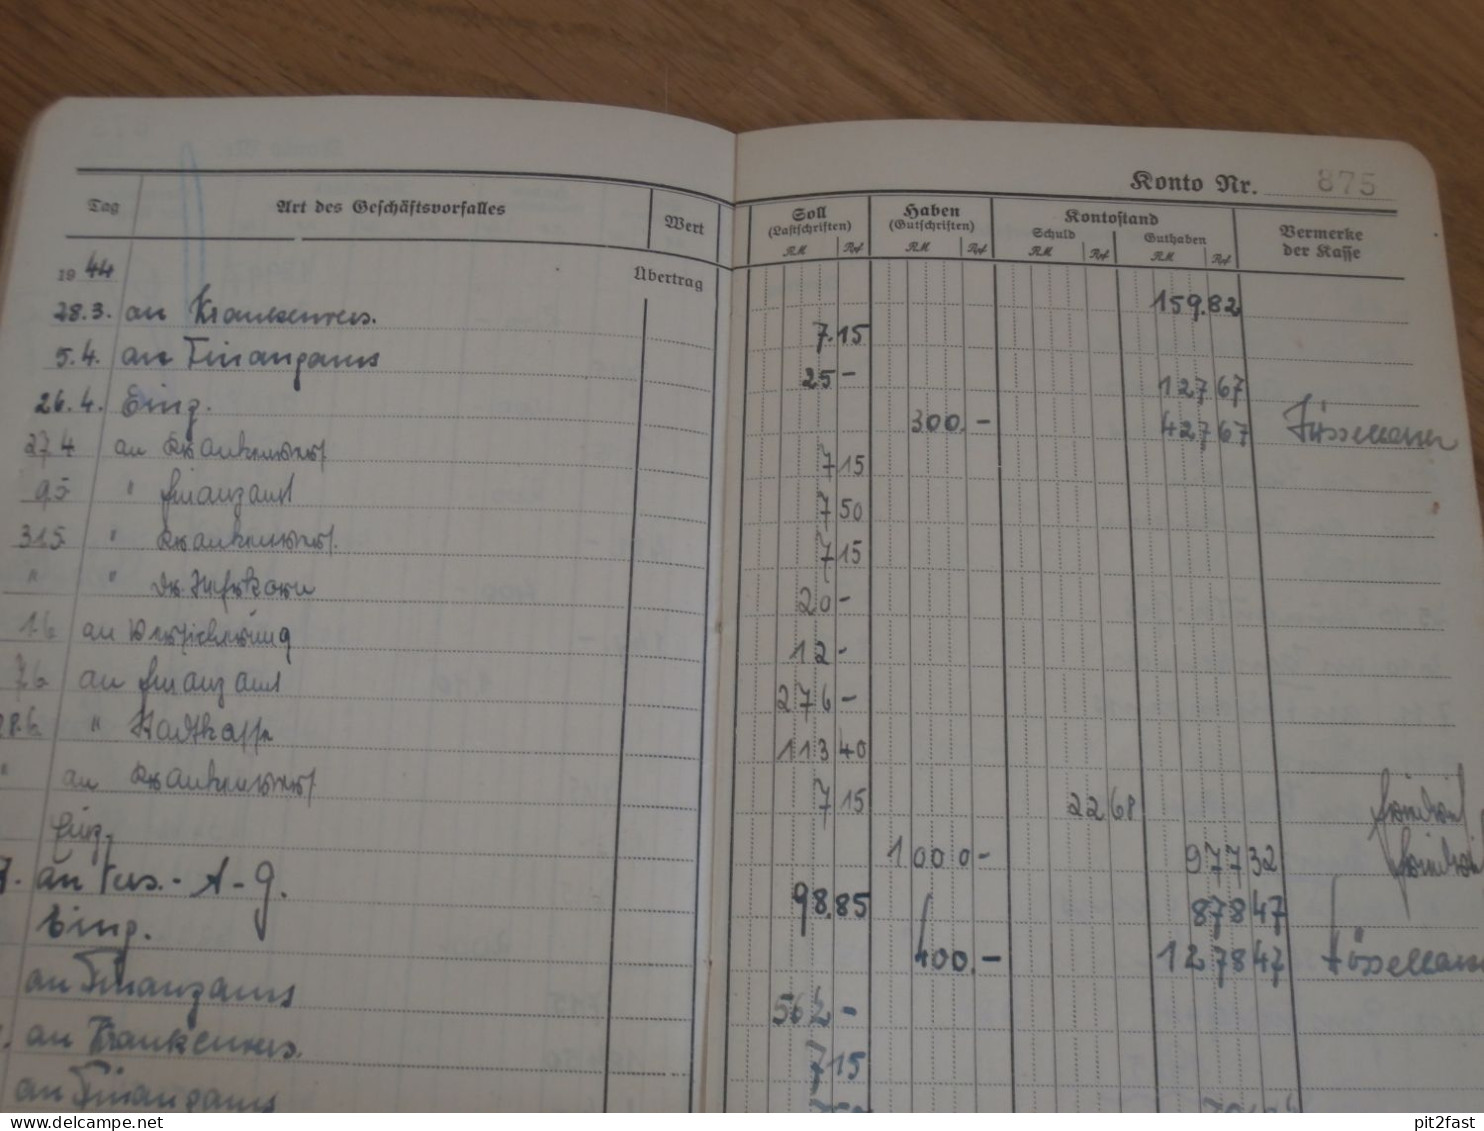 Konto Nr. 875
Tag Art des Geschäftsvorfalles Wert Soll (Lastschriften) RM Rpf Haben (Gutschriften) RM Rpf Kontostand Schuld RM Rpf Guthaben RM Rpf Vermerke der Kasse
1944 Übertrag 159.82
28.3. an Krankenvers. 7.15
5.4. an Finanzamt 25 - 127 67
26.4. Eing. 300.- 427 67 Füssemann
27 4 an Krankenvers 7 15
9 5 " Finanzamt 7 50
31 5 " Krankenvers. 7 15
" " Dr. 20 -
1 6 an Versicherung 12 -
7 6 an Finanzamt 276 -
28.6. " Stadtkasse 113 40
" an Krankenvers 7 15 22 68
Eing. 1000 - 977 32
an Vers.-A-G. 98.85 878 47
Eing. 400.- 1278 47 Füssemann
an Finanzamt 562 -
an Krankenvers. 7 15
an Finanzamt
pit2fast